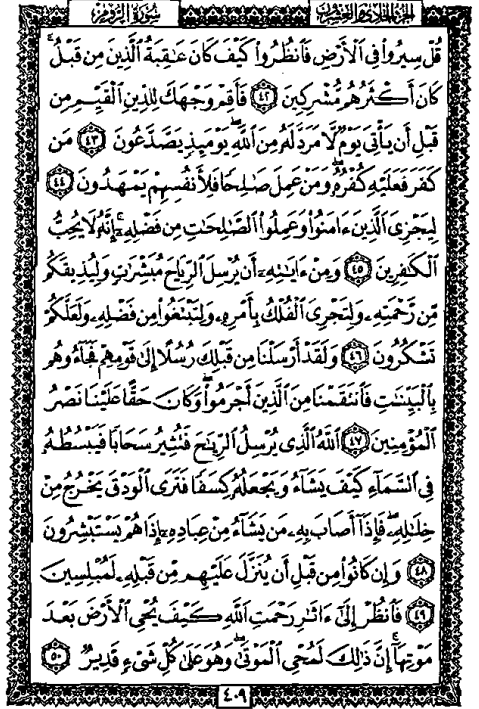 الجزء الحادي والعشرون سورة الروم
قُلْ سِيرُوا۟ فِى ٱلْأَرْضِ فَٱنظُرُوا۟ كَيْفَ كَانَ عَٰقِبَةُ ٱلَّذِينَ مِن قَبْلُۚ
كَانَ أَكْثَرُهُم مُّشْرِكِينَ ٤٢ فَأَقِمْ وَجْهَكَ لِلدِّينِ ٱلْقَيِّمِ مِن
قَبْلِ أَن يَأْتِىَ يَوْمٌ لَّا مَرَدَّ لَهُۥ مِنَ ٱللَّهِۖ يَوْمَئِذٍ يَصَّدَّعُونَ ٤٣ مَن
كَفَرَ فَعَلَيْهِ كُفْرُهُۥۖ وَمَنْ عَمِلَ صَٰلِحًا فَلِأَنفُسِهِمْ يَمْهَدُونَ ٤٤
لِيَجْزِىَ ٱلَّذِينَ ءَامَنُوا۟ وَعَمِلُوا۟ ٱلصَّٰلِحَٰتِ مِن فَضْلِهِۦٓۚ إِنَّهُۥ لَا يُحِبُّ
ٱلْكَٰفِرِينَ ٤٥ وَمِنْ ءَايَٰتِهِۦٓ أَن يُرْسِلَ ٱلرِّيَاحَ مُبَشِّرَٰتٍ وَلِيُذِيقَكُم
مِّن رَّحْمَتِهِۦ وَلِتَجْرِىَ ٱلْفُلْكُ بِأَمْرِهِۦ وَلِتَبْتَغُوا۟ مِن فَضْلِهِۦ وَلَعَلَّكُمْ
تَشْكُرُونَ ٤٦ وَلَقَدْ أَرْسَلْنَا مِن قَبْلِكَ رُسُلًا إِلَىٰ قَوْمِهِمْ فَجَآءُوهُم
بِٱلْبَيِّنَٰتِ فَٱنتَقَمْنَا مِنَ ٱلَّذِينَ أَجْرَمُوا۟ۖ وَكَانَ حَقًّا عَلَيْنَا نَصْرُ
ٱلْمُؤْمِنِينَ ٤٧ ٱللَّهُ ٱلَّذِى يُرْسِلُ ٱلرِّيَٰحَ فَتُثِيرُ سَحَابًا فَيَبْسُطُهُۥ
فِى ٱلسَّمَآءِ كَيْفَ يَشَآءُ وَيَجْعَلُهُۥ كِسَفًا فَتَرَى ٱلْوَدْقَ يَخْرُجُ مِنْ
خِلَٰلِهِۦۖ فَإِذَآ أَصَابَ بِهِۦ مَن يَشَآءُ مِنْ عِبَادِهِۦٓ إِذَا هُمْ يَسْتَبْشِرُونَ
٤٨ وَإِن كَانُوا۟ مِن قَبْلِ أَن يُنَزَّلَ عَلَيْهِم مِّن قَبْلِهِۦ لَمُبْلِسِينَ
٤٩ فَٱنظُرْ إِلَىٰٓ ءَاثَٰرِ رَحْمَتِ ٱللَّهِ كَيْفَ يُحْىِ ٱلْأَرْضَ بَعْدَ
مَوْتِهَآۚ إِنَّ ذَٰلِكَ لَمُحْىِ ٱلْمَوْتَىٰۖ وَهُوَ عَلَىٰ كُلِّ شَىْءٍ قَدِيرٌ ٥٠
٤٠٩